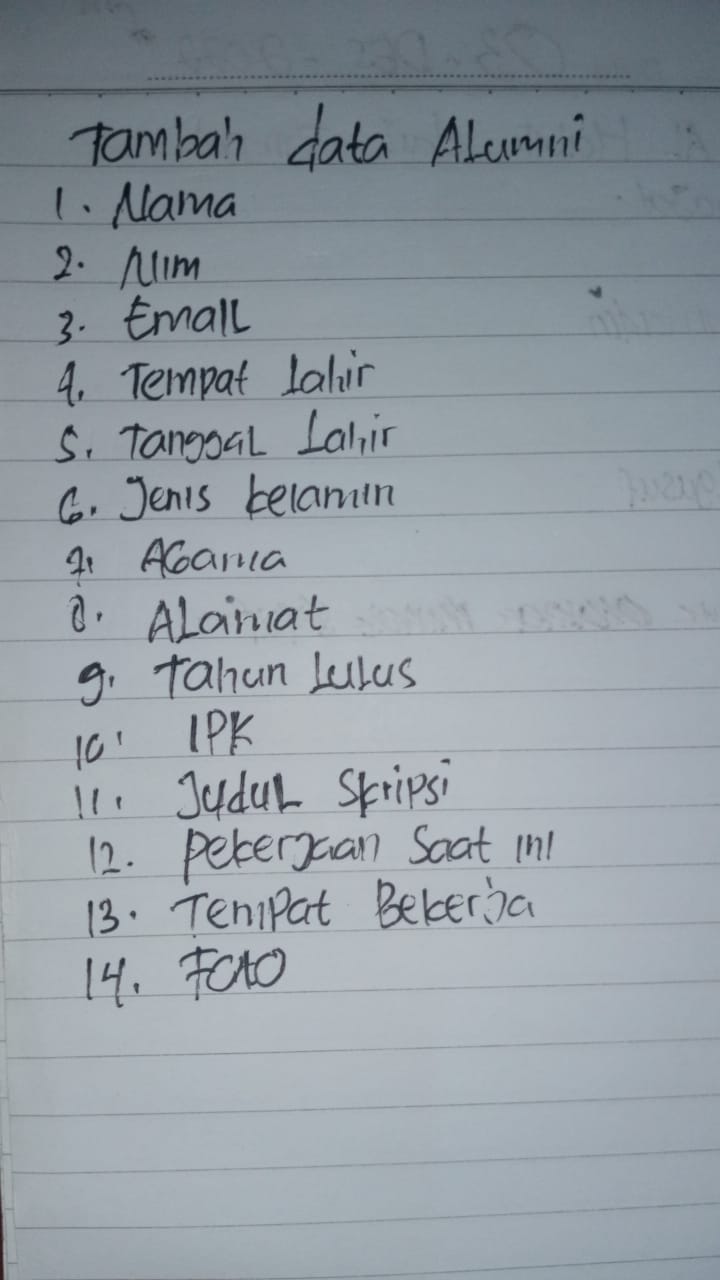 Tambah data Alumni
1. Nama
2. Nim
3. Email
4. Tempat Lahir
5. Tanggal Lahir
6. Jenis kelamin
7. AGama
8. ALamat
9. Tahun Lulus
10. IPK
11. Judul Skripsi
12. Pekerjaan Saat ini
13. Tempat Bekerja
14. Foto